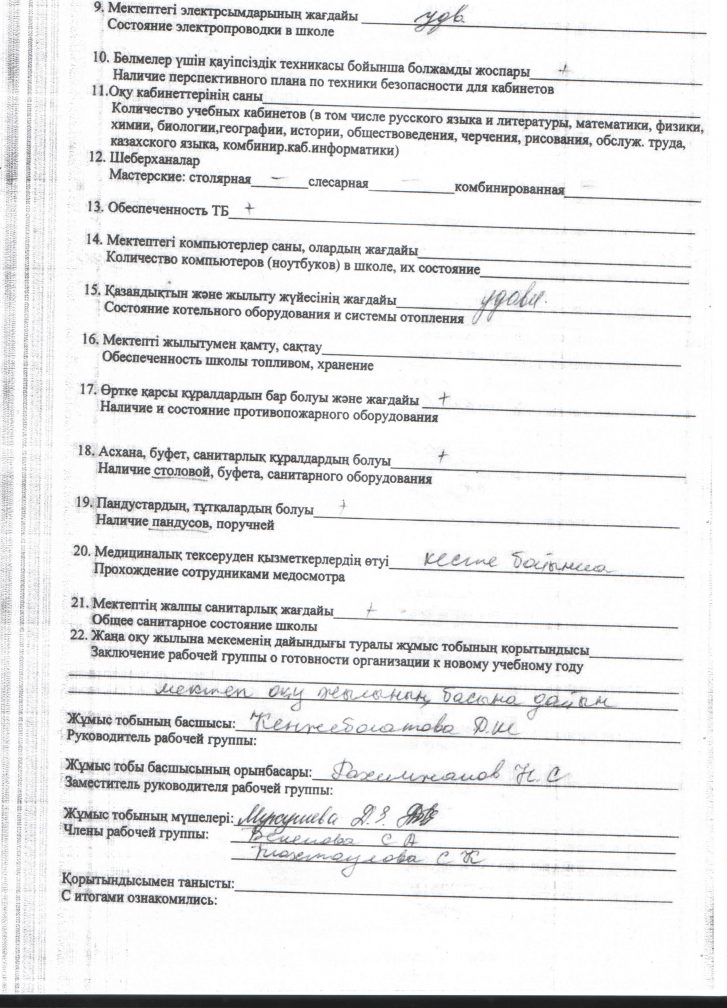 9. Мектептегі электрсымдарының жағдайы удв.
Состояние электропроводки в школе
10. Бөлмелер үшін қауіпсіздік техникасы бойынша болжамды жоспары +
Наличие перспективного плана по техники безопасности для кабинетов
11.Оқу кабинеттерінің саны
Количество учебных кабинетов (в том числе русского языка и литературы, математики, физики,
химии, биологии,географии, истории, обществоведения, черчения, рисования, обслуж. труда,
казахского языка, комбинир.каб.информатики)
12. Шеберханалар
Мастерские: столярная – слесарная – комбинированная –
13. Обеспеченность ТБ +
14. Мектептегі компьютерлер саны, олардың жағдайы
Количество компьютеров (ноутбуков) в школе, их состояние
15. Қазандықтын және жылыту жүйесінің жағдайы удовл.
Состояние котельного оборудования и системы отопления
16. Мектепті жылытумен қамту, сақтау
Обеспеченность школы топливом, хранение
17. Өртке қарсы құралдардын бар болуы және жағдайы +
Наличие и состояние противопожарного оборудования
18. Асхана, буфет, санитарлық құралдардың болуы +
Наличие столовой, буфета, санитарного оборудования
19. Пандустардың, тұтқалардың болуы +
Наличие пандусов, поручней
20. Медициналық тексеруден қызметкерлердің өтуі кесте бойынша
Прохождение сотрудниками медосмотра
21. Мектептің жалпы санитарлық жағдайы +
Общее санитарное состояние школы
22. Жаңа оқу жылына мекеменің дайындығы туралы жұмыс тобының қорытындысы
Заключение рабочей группы о готовности организации к новому учебному году
мектеп оқу жылының басына дайын
Жұмыс тобының басшысы: Кенжеболатова Д.
Руководитель рабочей группы:
Жұмыс тобы басшысының орынбасары: Рахимжанов Н. С
Заместитель руководителя рабочей группы:
Жұмыс тобының мүшелері: Д.З.
Члены рабочей группы: С А
С К
Қорытындысымен танысты:
С итогами ознакомились: